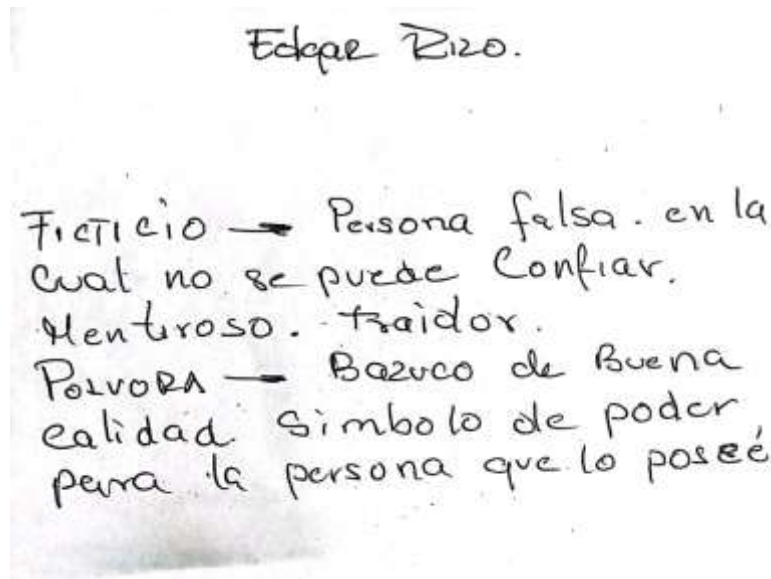 Edgar Rizo.
Ficticio — Persona falsa. en la
cual no se puede Confiar.
Mentiroso. traidor.
Polvora — Bazuco de Buena
calidad. Simbolo de poder
para la persona que lo poseé